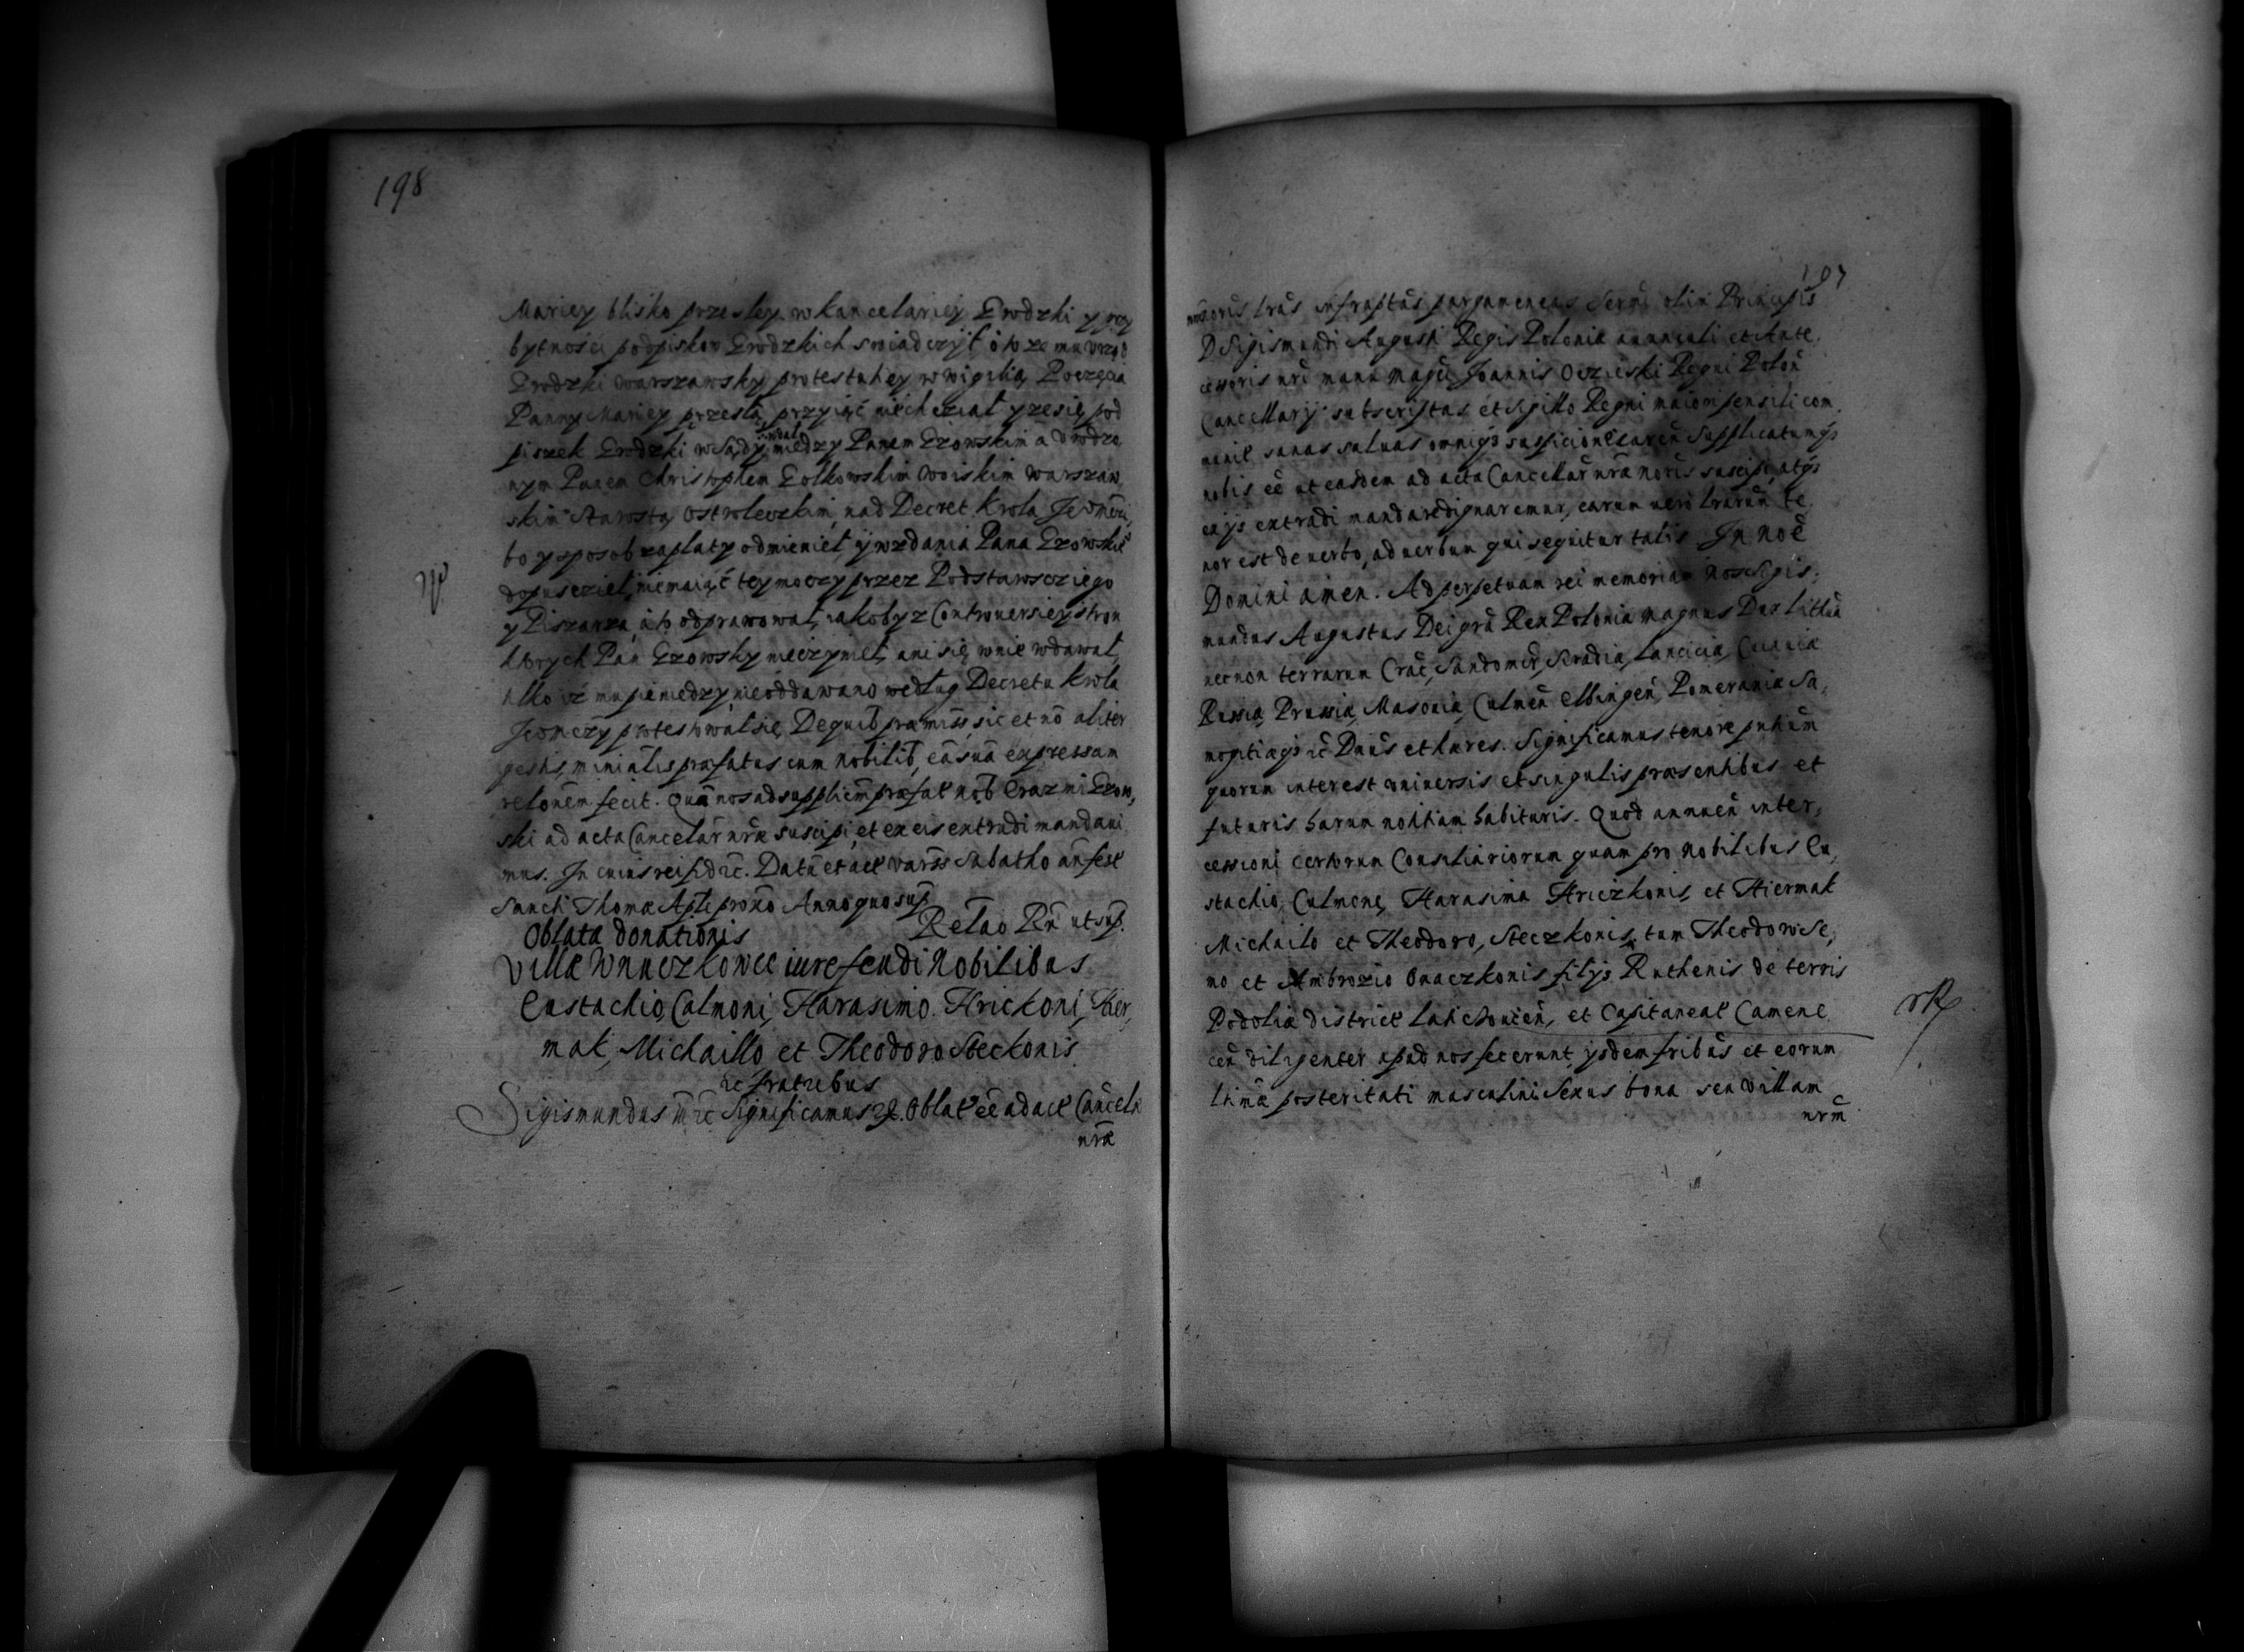 198
Mariey blisko przesłey w kancelariey Grodzki y przy
bytności podpiskow Grodzkich swiadczył o to ze mu vrząd
Grodzki warszawsky protestatiey w wigilią Poczęcia
Panny Mariey przesłą przyiąć niechciał y ze się pod
pisek Grodzki w Sądy wdał między Panem Gzowskim a Vrodzo
nym Panem Christophem Golkowskim woiskim warszaw
skim Starostą Ostroleczkim, nad Decret Krola Jeomczi,
to y sposob zapłaty odmienieł y wzdania Pana Gzowskie
dopuscziel, niemaiąć tey moczy przez Podstarosciego
y Pisarza, a to odprawował, iakoby z Controuersiey stron
ktorych Pan Gzowsky nieczynieł, ani się w nie wdawał,
tilko iż mu pieniędzy nieoddawano według Decretu Krola
Jeomczy protestował się, De quib praemiss, sic et nō aliter
gestis, minialis praefatus cum nobilib, eā suā expressam
relonēm fecit. Quā nos ad supplicm praefat nob Erazmi Gzow,
ski ad acta Cancelar nrae suscipi, et ex eis extradi mandaui
mus. In cuius rei fid ec. Datū et act vars Sabatho an fest
Sancti Thomae Apli prox Anno quo sup
Relao Rn ut sup.
Oblata donationis
Villae Wnuczkowce iure feudi Nobilibus
Eustachio, Calmoni, Harasimo. Hrickoni, Hier,
mak, Michaillo et Theodoro Steckonis
ec fratribus
Sigismundus III ec Significamus ec. Oblat eē ad act Cancela
nrae
197
D Sigismundi Augusti Regis Poloniae auunculi et Ante
cessoris nri manu magci Joannis Oczieski Regni Polon
Cancellarij subscriptas et Sigillo Regni maiori pensili com
nobis eē ut easdem ad acta Cancellar nra
ex ijs extradi mandare dignaremur, earum vero lrarum te
nor est de verbo, ad verbum qui sequitur talis In noē
Domini amen. Ad perpetuam rei memoriam nos Sigis,
mundus Augustus Dei gra Rex Poloniae magnus Dux Littua
necnon terrarum Crac, Sandomir, Siradia, Lancicia, Cuiauiae
Russia, Prussia, Masouia, Culmen Elbingen, Pomerania Sa,
mogitiaeqȝ ec Dnus et hares. Significamus tenore pntium
quorum interest vniuersis et singulis praesentibus et
futuris harum notitiam habituris. Quod annuen inter,
cessioni certorum Consiliariorum quam pro Nobilibus Eu,
stachio, Culmone, Harasima Hriczkonis, et Hiermak
Michailo et Theodoro, Steczkonis, tum Theodow Se,
no et Ambrozio Onaczkonis filijs Ruthenis de terris
Podoliae district Latichouien, et Capitaneat Camene
cen diligenter apud nos fecerunt, ijsdem fribus et eorum
ltimae posteritati masculini Sexus bona seu villam
nrm